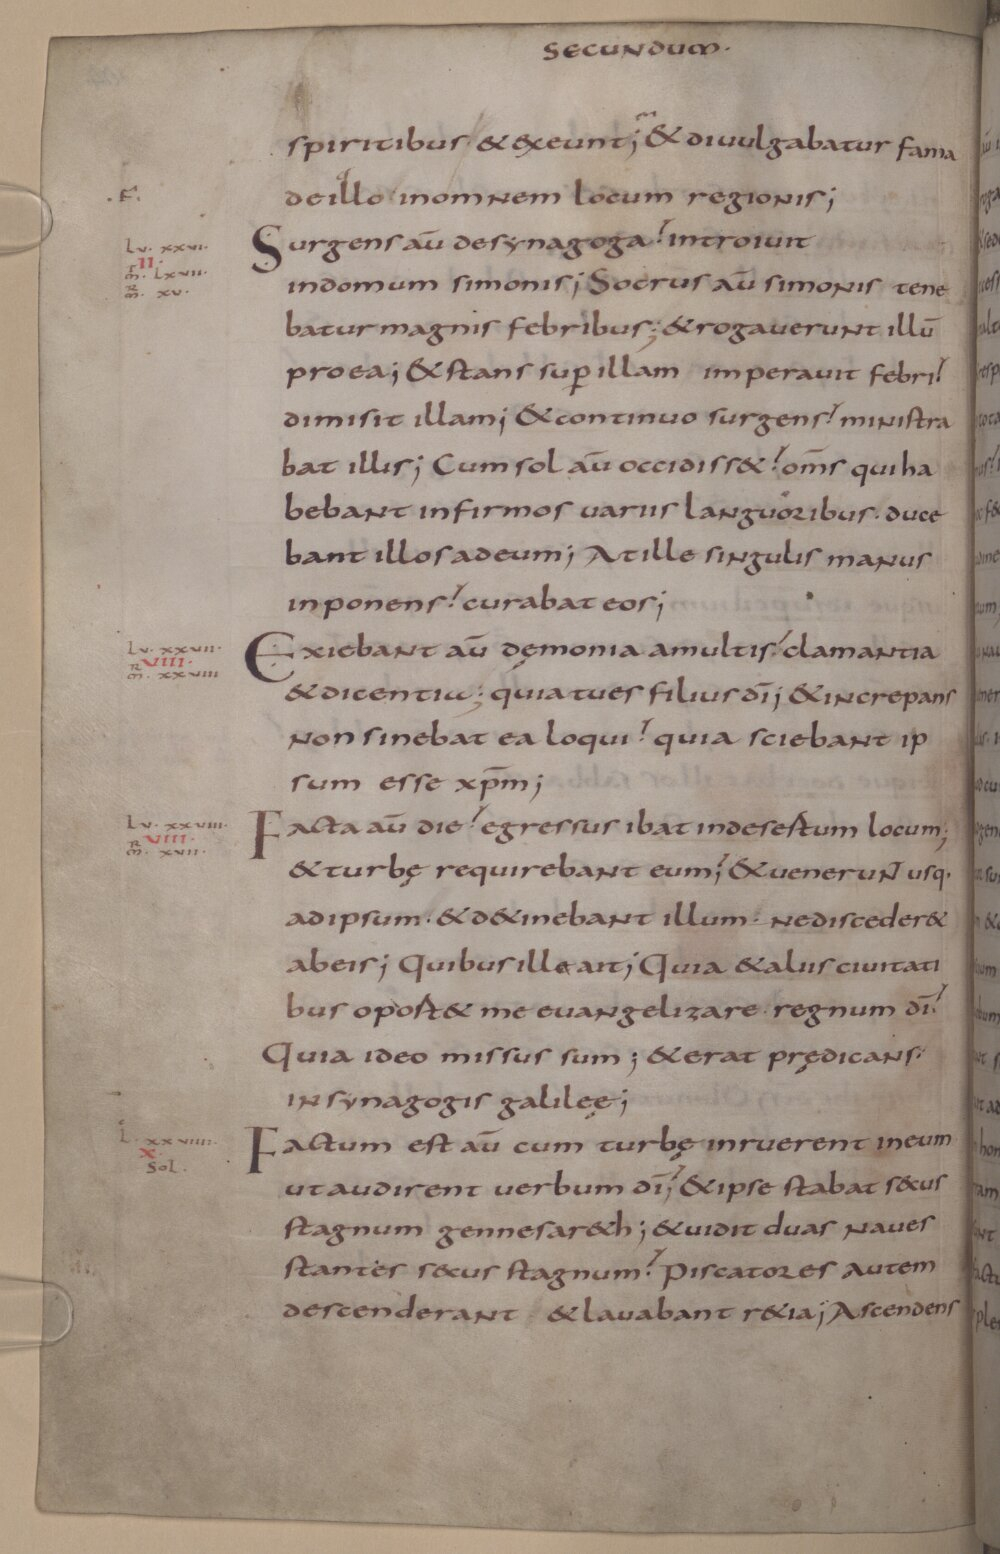 SECUNDUM·
spiritibus & exeunt; & divulgabatur fama
de illo in omnem locum regionis;
·F·
Surgens aū de synagoga introivit
Lv· xxvi·
II·
mt· lxvii·
mr· xv·
in domum simonis; Socrus aū simonis tene
batur magnis febribus; & rogaverunt illū
pro ea; & stans sup illam imperavit febri
dimisit illam; & continuo surgens ministra
bat illis; Cum sol aū occidiss& om̄s qui ha
bebant infirmos variis languoribus· duce
bant illos ad eum; At ille singulis manus
inponens curabat eos;
Exiebant aū dęmonia a multis clamantia
Lv· xxvii·
VIII·
mr· xxviii
& dicentia; quia tu es filius dī; & increpans
non sinebat ea loqui quia sciebant ip
sum esse xp̄m;
Facta aū die egressus ibat in desertum locum;
Lv· xxviii·
VIII·
mr· xvii·
& turbę requirebant eum; & venerunt usq·
ad ipsum· & d&inebant illum· ne disceder&
ab eis; Quibus ille ait; Quia & aliis civitati
bus oport& me evangelizare regnum dī
Quia ideo missus sum; & erat prędicans
in synagogis galileę;
Factum est aū cum turbę inruerent in eum
L· xxviiii·
x·
Sol·
ut audirent verbum dī; & ipse stabat secus
stagnum gennesar&h; & vidit duas naves
stantes secus stagnum Piscatores autem
descenderant & lavabant r&ia; Ascendens